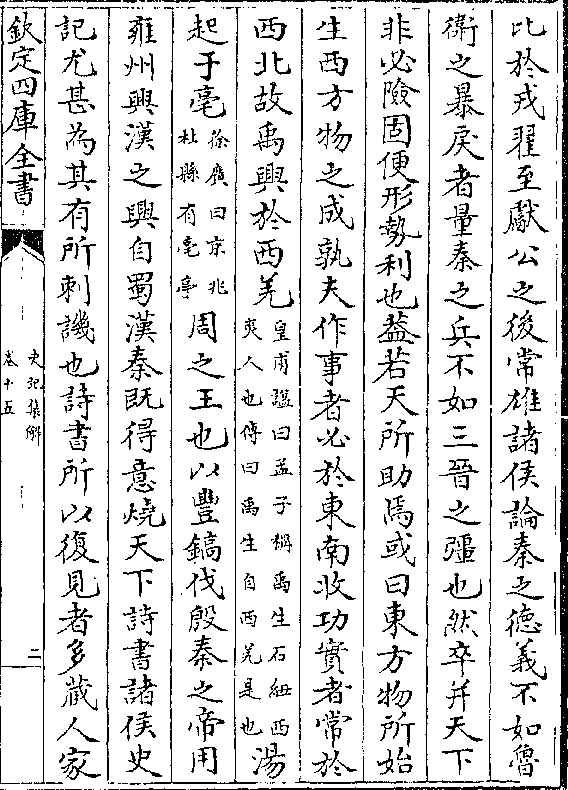 比於戎翟至獻公之後常雄諸侯論秦之德義不如魯
衛之暴戾者量秦之兵不如三晉之彊也然卒并天下
非必險固便形勢利也葢若天所助焉或曰東方物所始
生西方物之成孰夫作事者必於東南收功實者常於
西北故禹興於西羌皇甫謐曰孟子稱禹生石紐西夷人也傳曰禹生自西羌是也湯
起于亳徐廣曰京兆杜縣有亳亭周之王也以豐鎬伐殷秦之帝用
雍州興漢之興自蜀漢秦既得意燒天下詩書諸侯史
記尤甚為其有所刺譏也詩書所以復見者多藏人家
欽定四庫全書
史記集解
卷十五
二